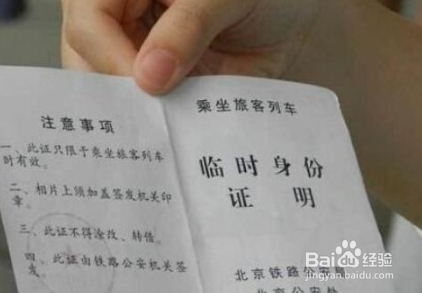 注意事项
一、此证只限于乘坐旅客列车
时有效。
二、相片上须加盖签发机关印
章。
三、此证不得涂改、转借。
四、此证由铁路公安机关签
发。
乘坐旅客列车
临时身份
证明
北京铁路公安
北京公安处
Baidu经验
jingyan.baidu.com